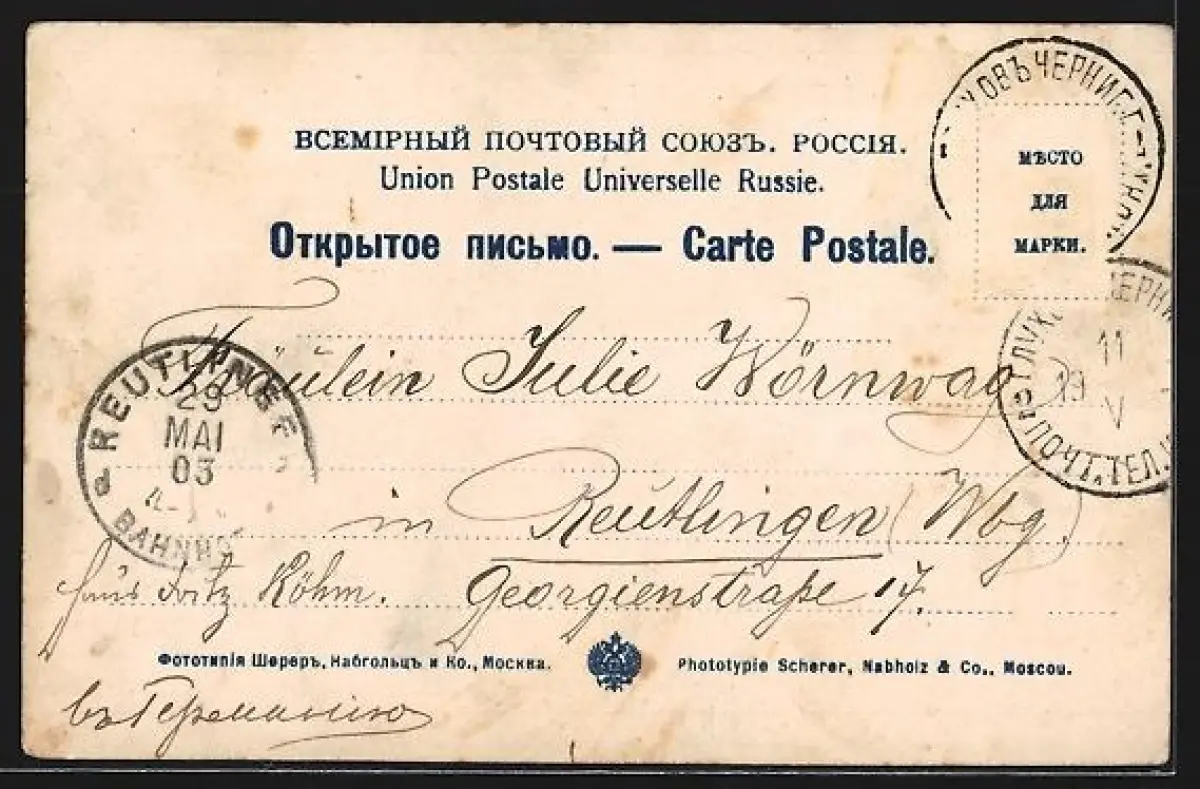 ВСЕМІРНЫЙ ПОЧТОВЫЙ СОЮЗЪ. РОССІЯ.
Union Postale Universelle Russie.
Открытое письмо. — Carte Postale.
МѢСТО
ДЛЯ
МАРКИ.
ЧЕРНИГ
11
V
19
ПОЧТ.ТЕЛ.
REUTLINGEN
29
MAI
03
BAHNH
Fräulein Julie Wörnwag
in Reutlingen (Wbg.)
Haus Fritz Köhm. Georgienstraße 17.
Фототипія Шереръ, Набгольцъ и Ко., Москва. Phototypie Scherer, Nabholz & Co., Moscou.
въ Германію